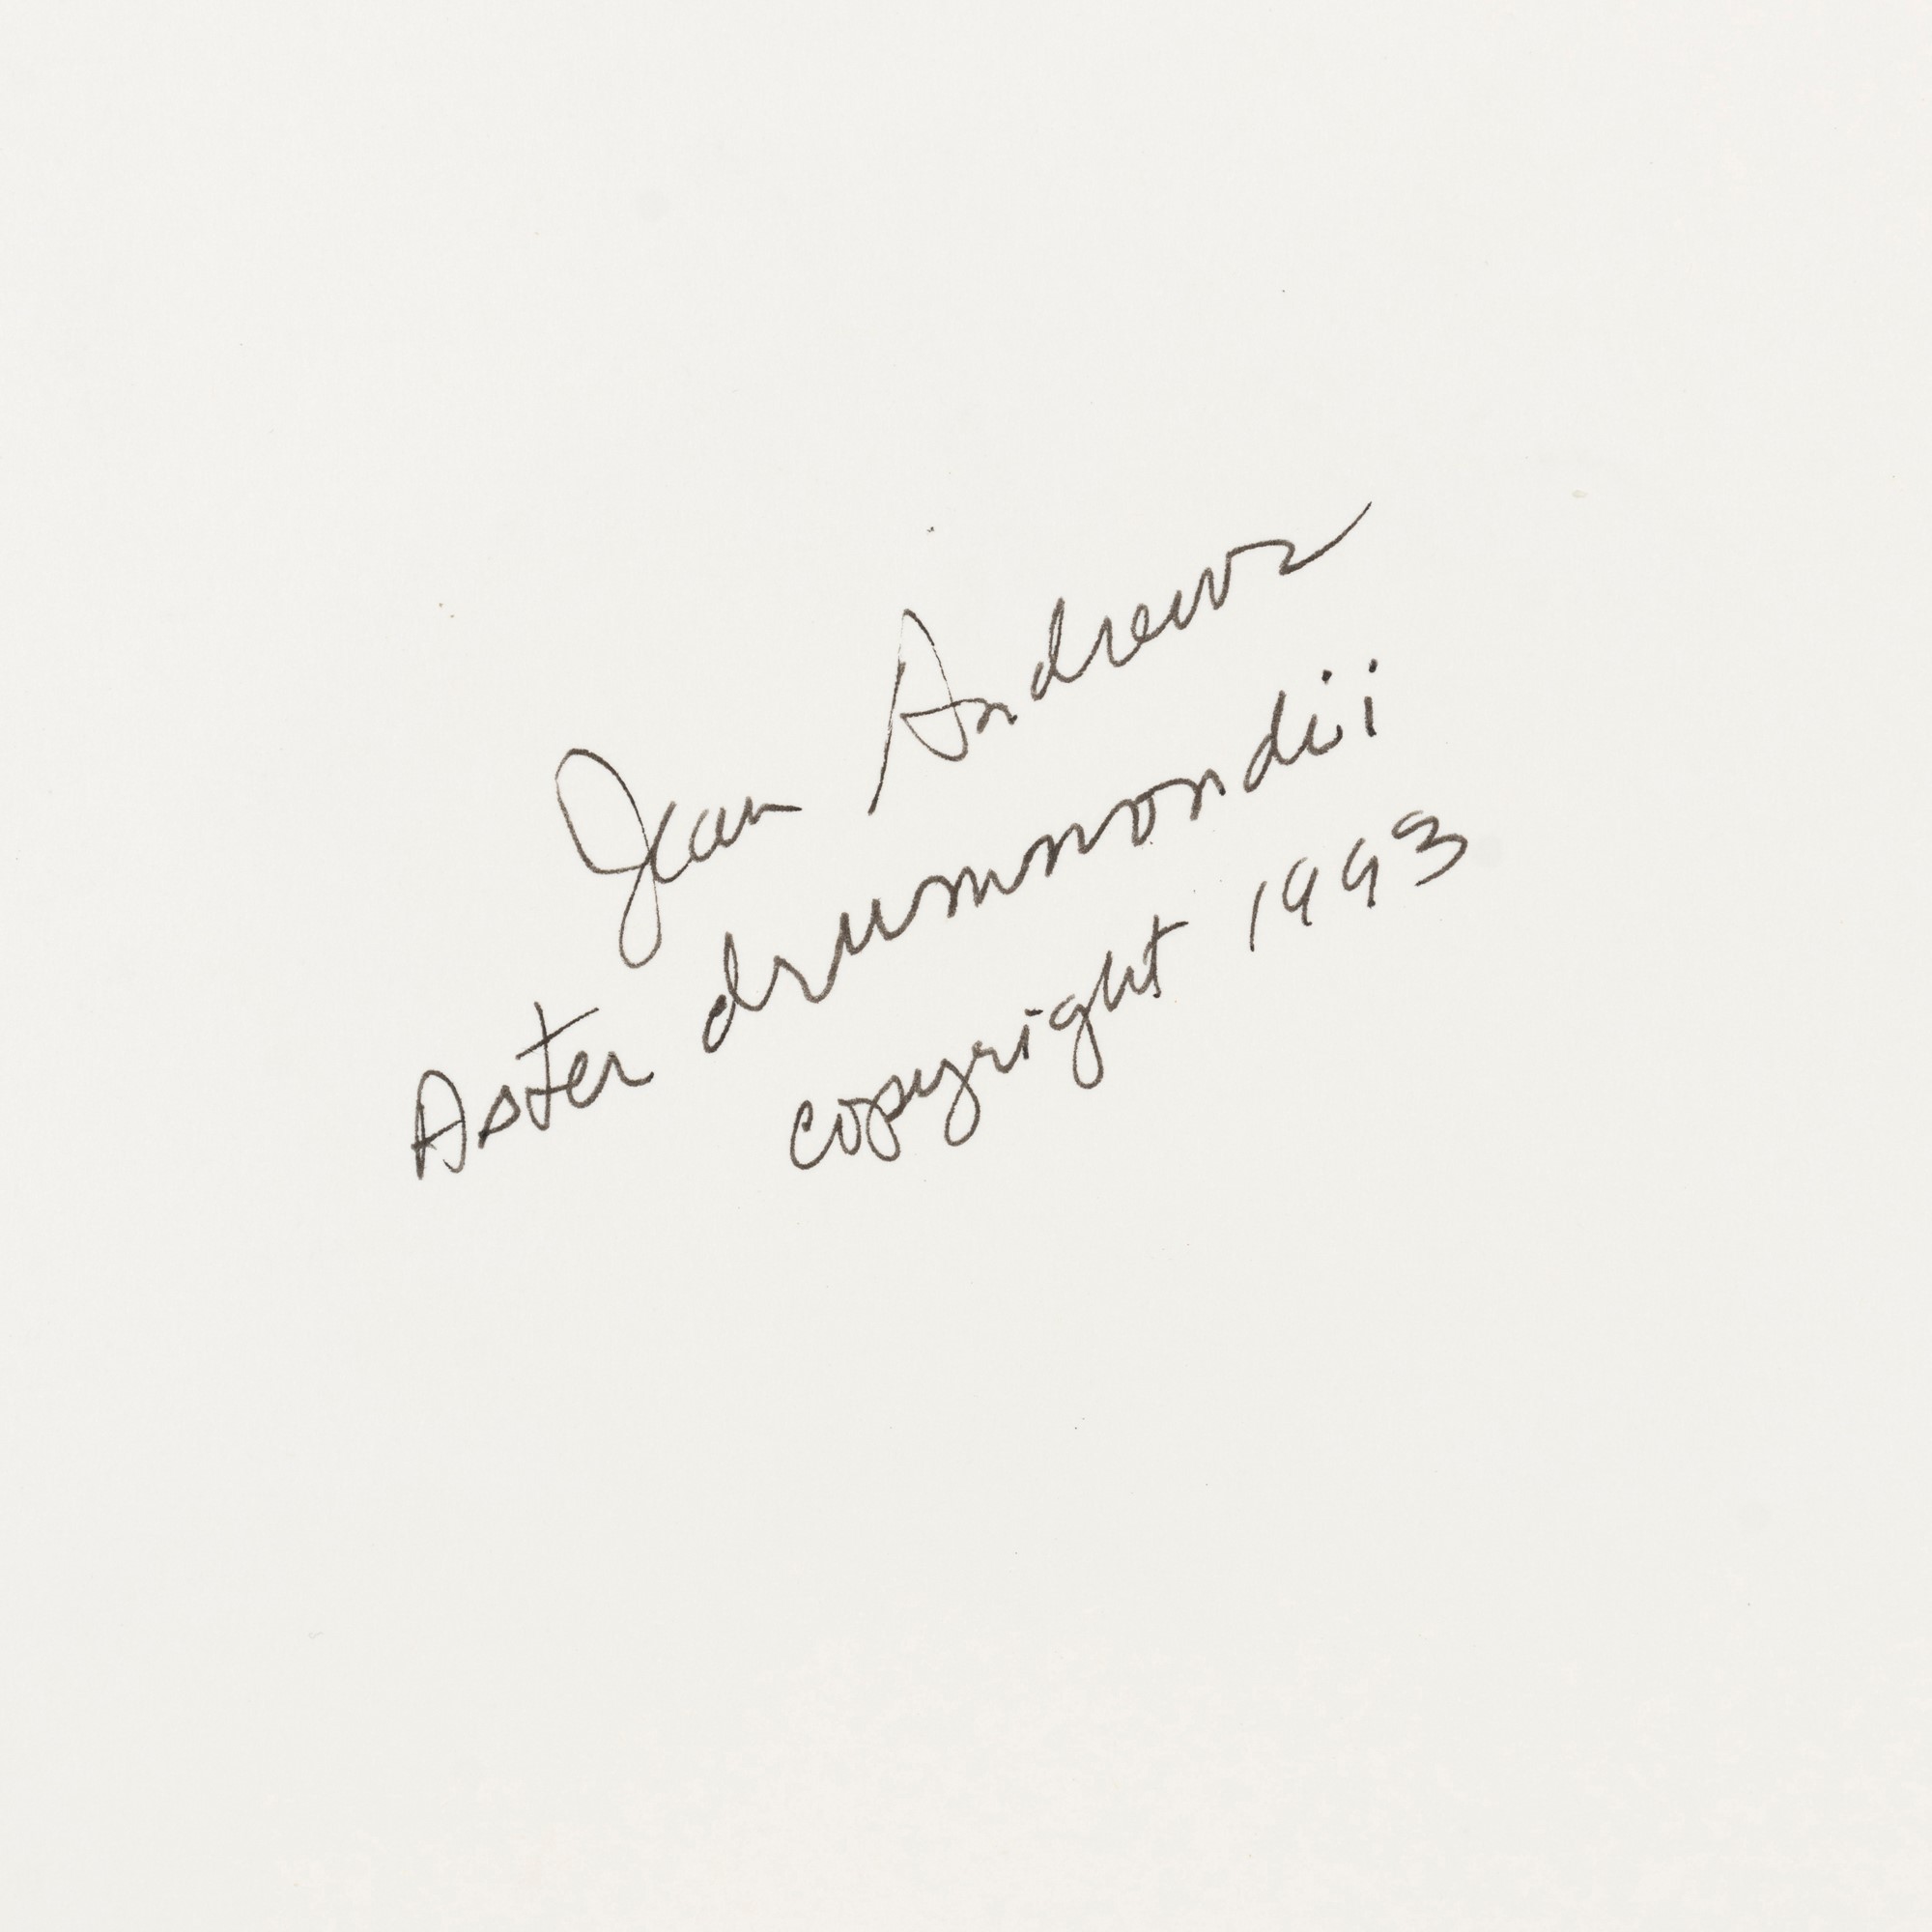 Jean Andrews
Aster drummondii
copyright 1993